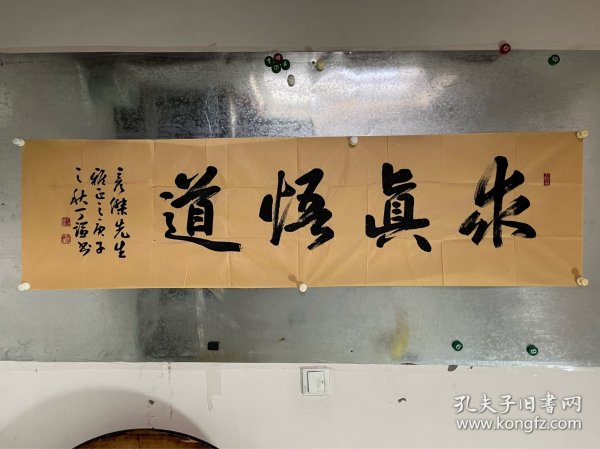 求真悟道
彦傑先生
雅正之庚子
之秋丁谦书
孔夫子旧书网
www.kongfz.com